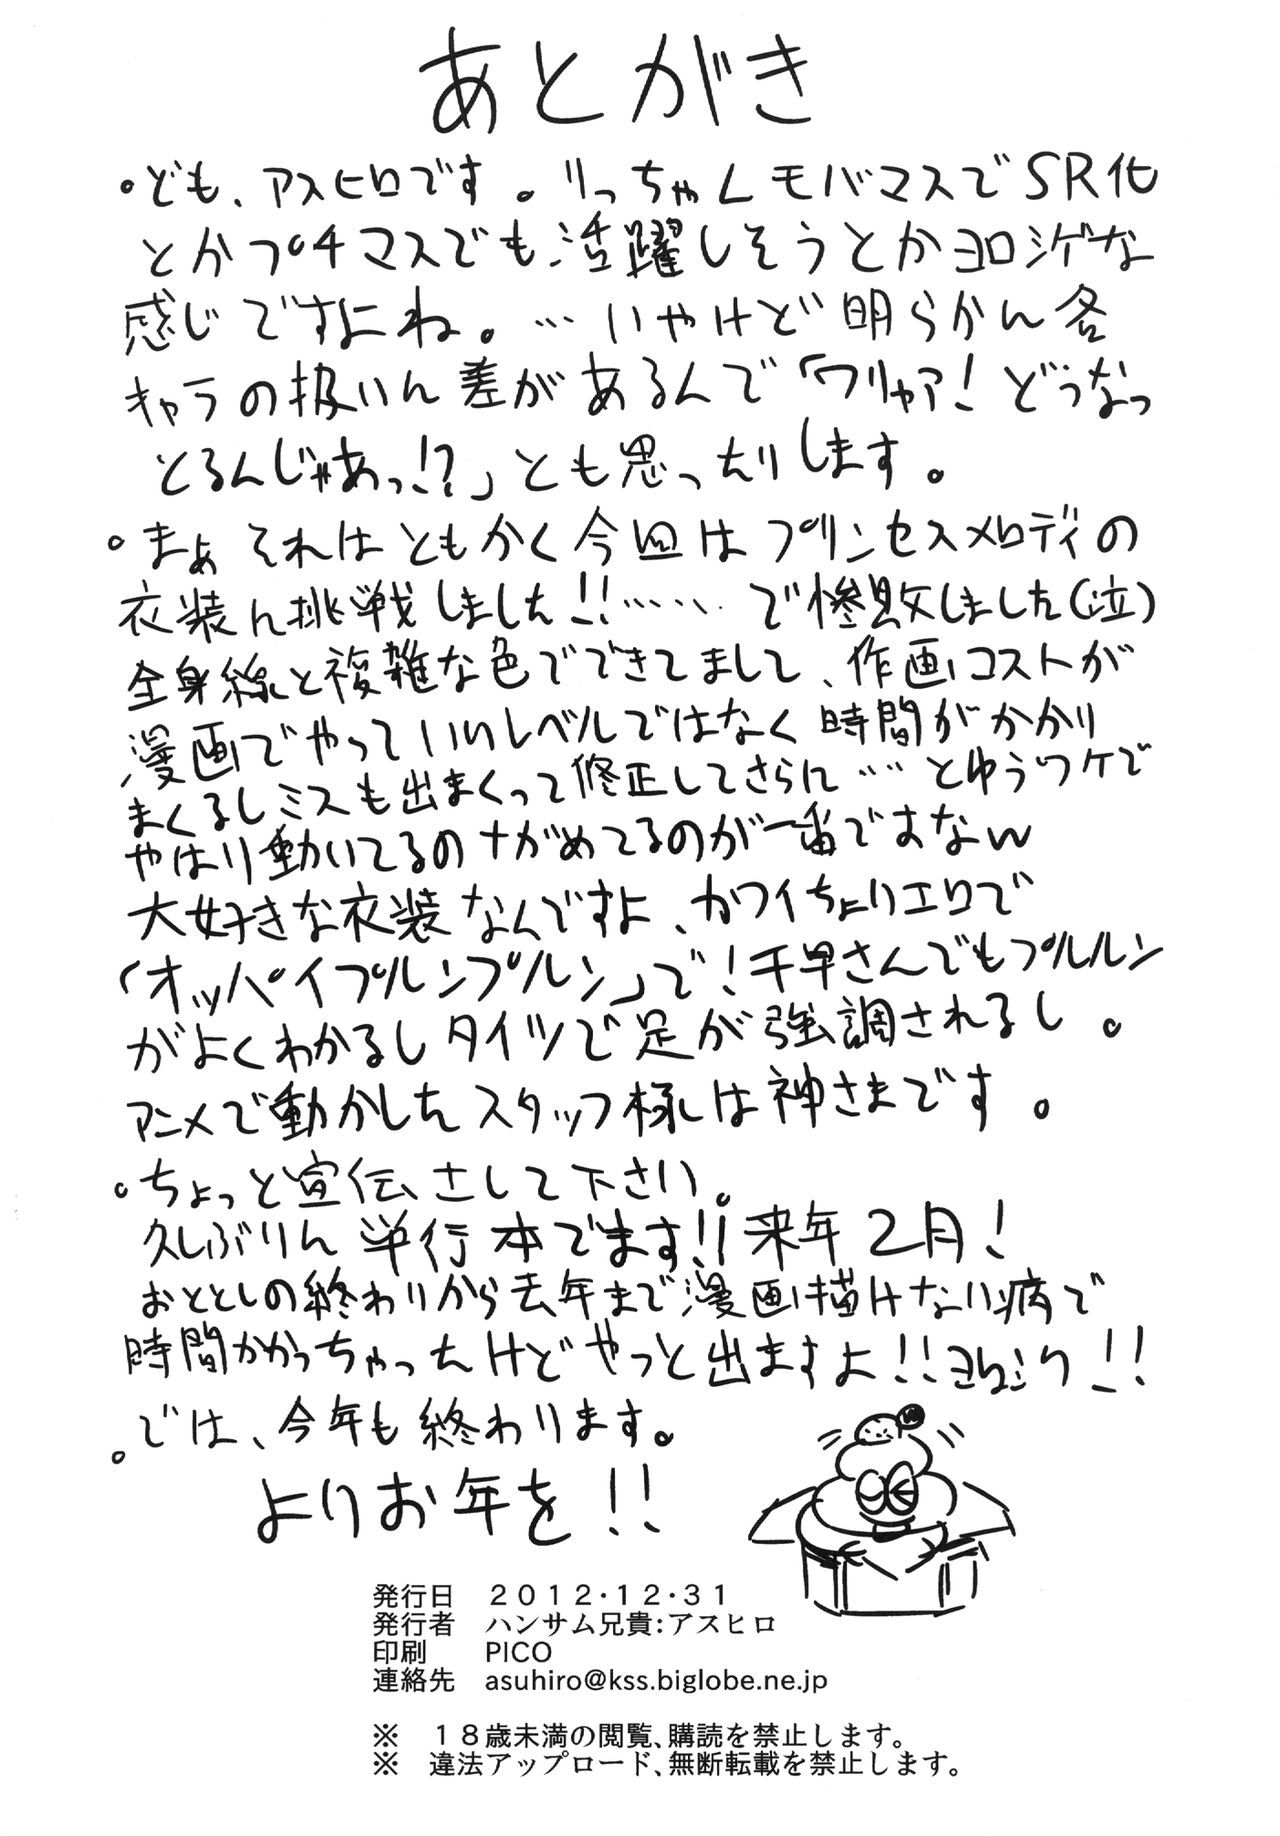 あとがき
・ども、アスヒロです。りっちゃんモバマスでSR化
とかプチマスでも活躍しそうとかヨロシゲな
感じですよね。…いやけど明らかん各
キャラの扱いん差があるんで「ワリャア！どうなっ
とるんじゃあっ!?」とも思ったりします。
・まぁそれはともかく今回はプリンセスメロディの
衣装ん挑戦しました!!……で惨敗しました(泣)
全身線と複雑な色でできてまして、作画コストが
漫画でやっていいレベルではなく時間がかかり
まくるしミスも出まくって修正してさらに…とゆうワケで
やはり動いてるのナがめてるのが一番ですなw
大好きな衣装なんですよ、カワイちょりエロで
「オッパイプルンプルン」で!千早さんでもプルルン
がよくわかるしタイツで足が強調されるし。
アニメで動かしたスタッフ様は神さまです。
・ちょっと宣伝さして下さい。
久しぶりん単行本でます!!来年2月!
おととしの終わりから去年まで漫画描けない病で
時間かかっちゃったけどやっと出ますよ!!ヨロシク!!
・では、今年も終わります。
よりお年を!!
発行日 2012・12・31
発行者 ハンサム兄貴:アスヒロ
印刷 PICO
連絡先 asuhiro@kss.biglobe.ne.jp
※ 18歳未満の閲覧、購読を禁止します。
※ 違法アップロード、無断転載を禁止します。